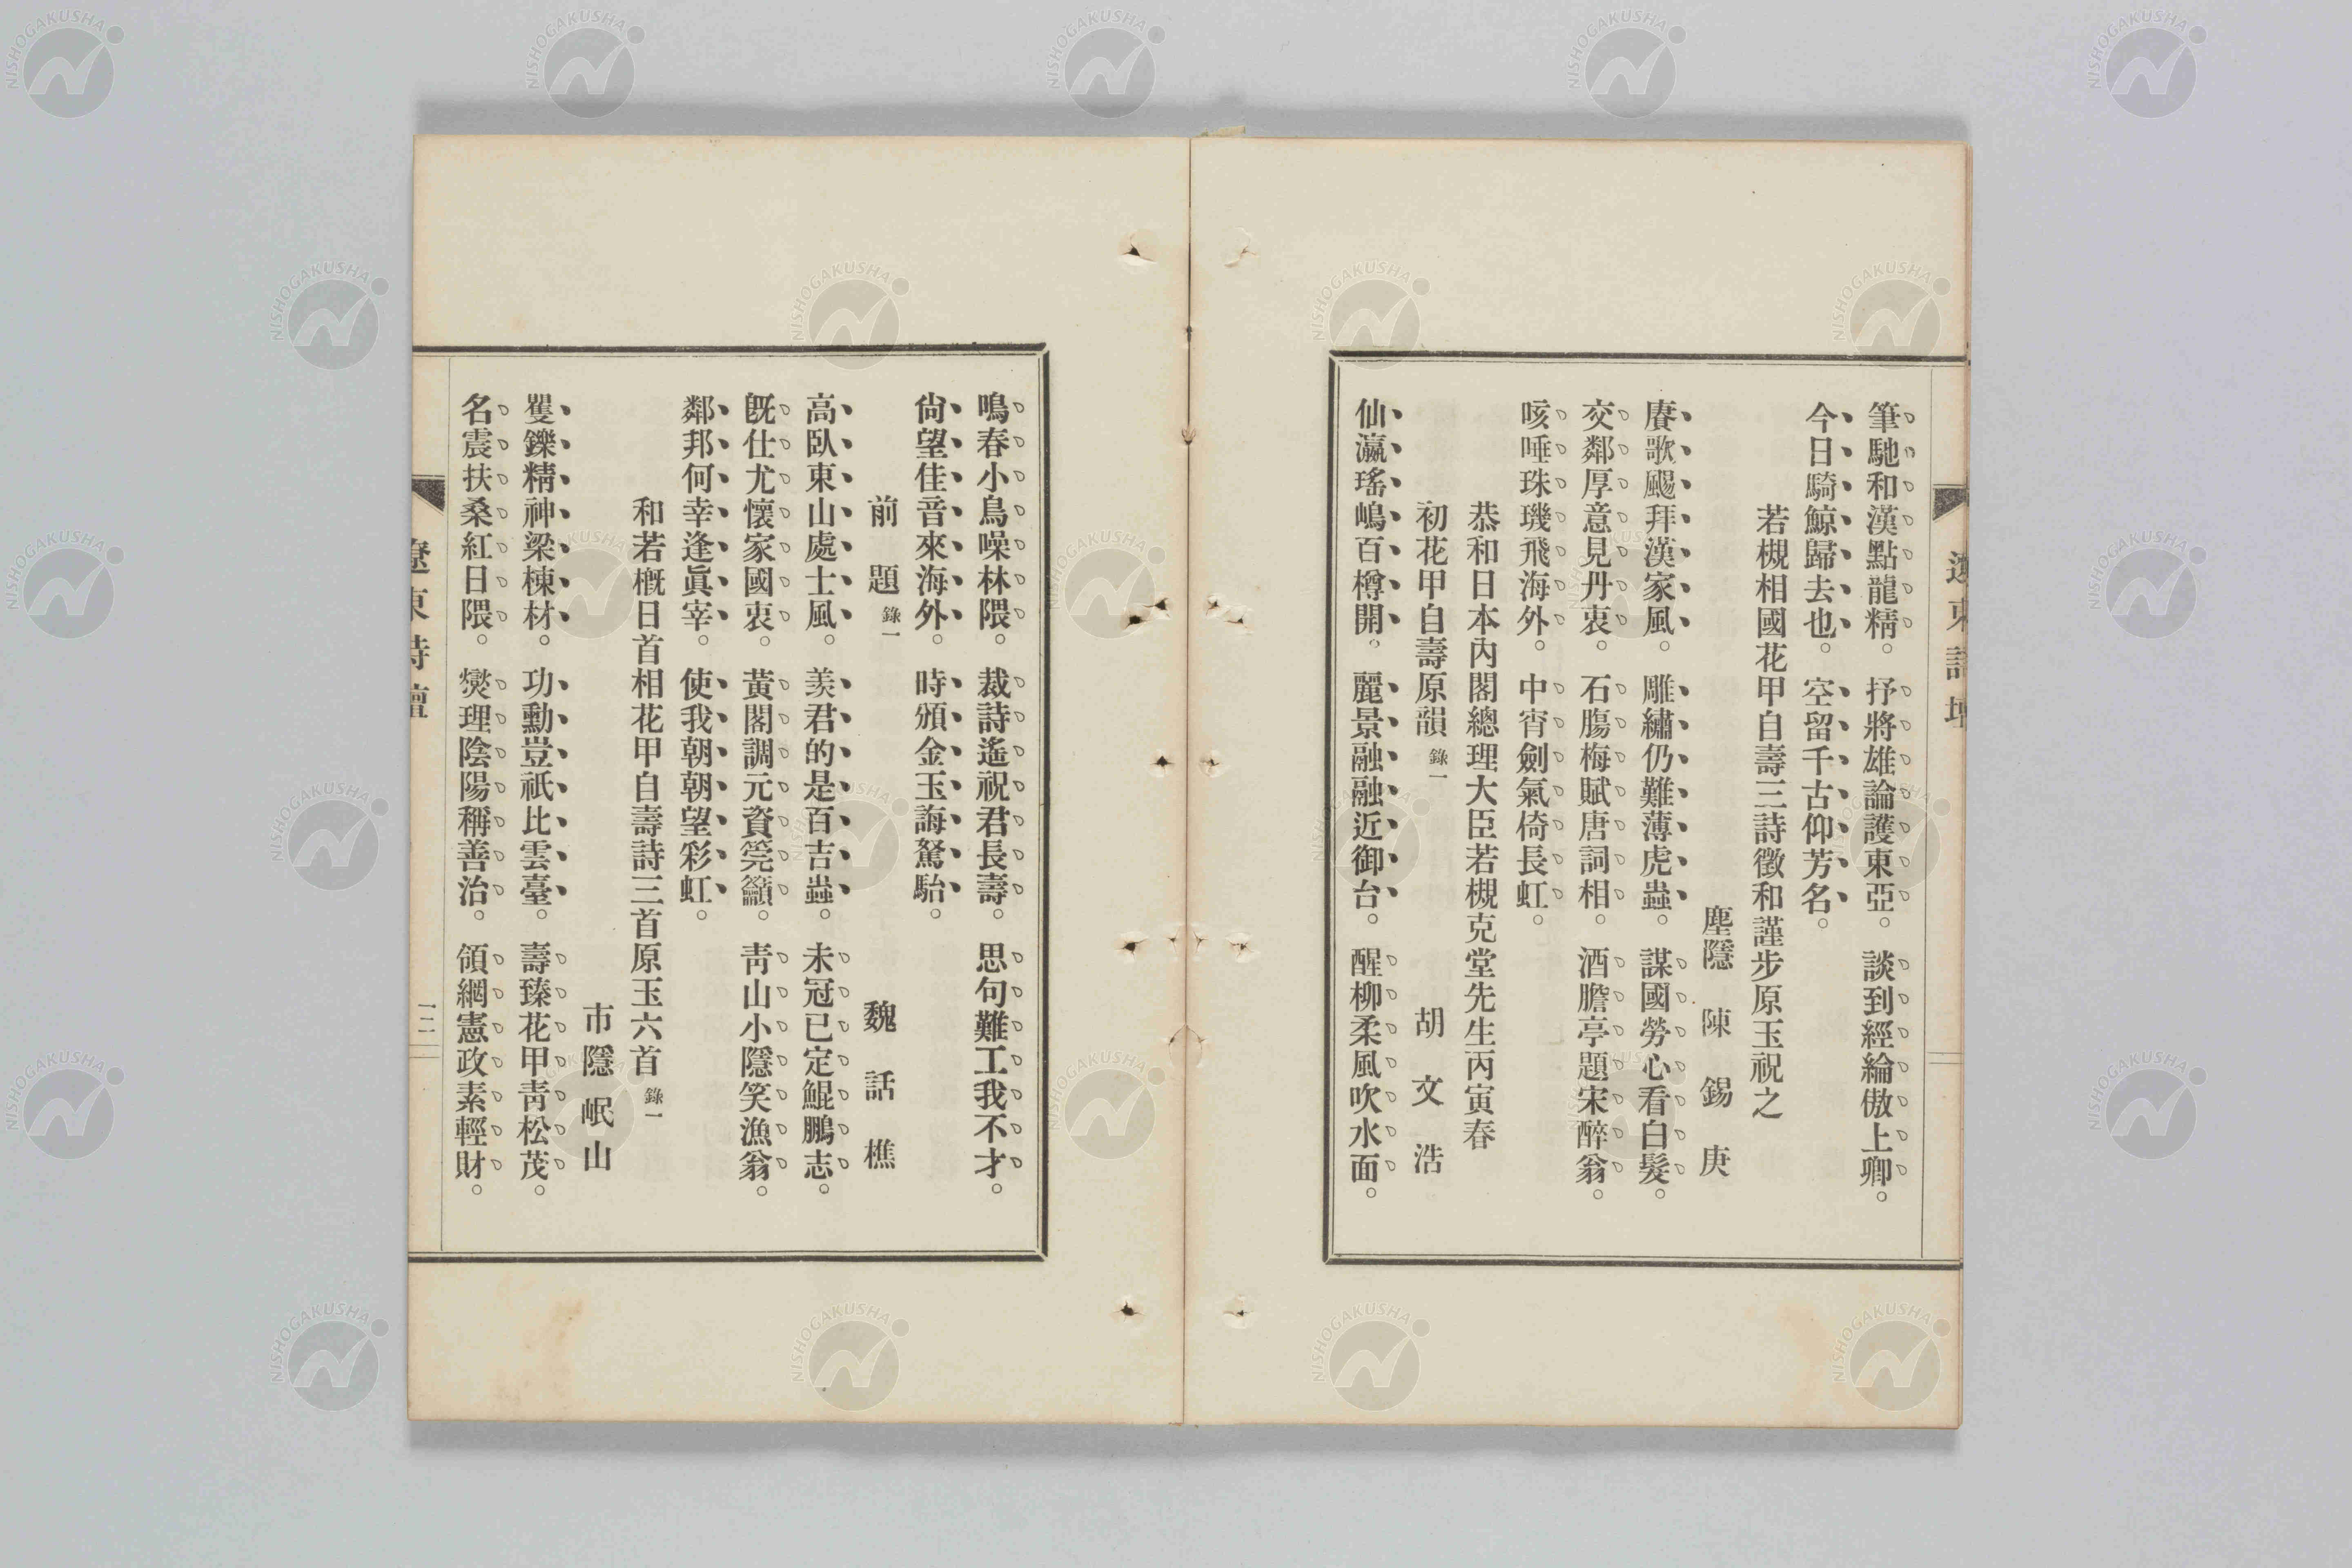 筆馳和漢點龍精。抒將雄論護東亞。談到經綸傲上卿。
今日騎鯨歸去也。空留千古仰芳名。
若槻相國花甲自壽三詩徵和謹步原玉祝之
塵隱 陳錫庚
賡歌颺拜漢家風。雕繡仍難薄虎蟲。謀國勞心看白髮。
交鄰厚意見丹衷。石膓梅賦唐詞相。酒膽亭題宋醉翁。
咳唾珠璣飛海外。中宵劍氣倚長虹。
恭和日本內閣總理大臣若槻克堂先生丙寅春
初花甲自壽原韻 錄一 胡文浩
仙瀛瑤嶋百樽開。麗景融融近御台。醒柳柔風吹水面。
鳴春小鳥噪林隈。裁詩遙祝君長壽。思句難工我不才。
尙望佳音來海外。時頒金玉誨駑駘。
前題 錄一 魏話樵
高臥東山處士風。羨君的是百吉蟲。未冠已定鯤鵬志。
旣仕尤懷家國衷。黃閣調元資筦籲。靑山小隱笑漁翁。
鄰邦何幸逢眞宰。使我朝朝望彩虹。
和若槪日首相花甲自壽詩三首原玉六首 錄一
市隱 岷山
矍鑠精神梁棟材。功勳豈祇比雲臺。壽臻花甲靑松茂。
名震扶桑紅日隈。爕理陰陽稱善治。領綱憲政素輕財。
遼東詩壇
一二
NISHOGAKUSHA